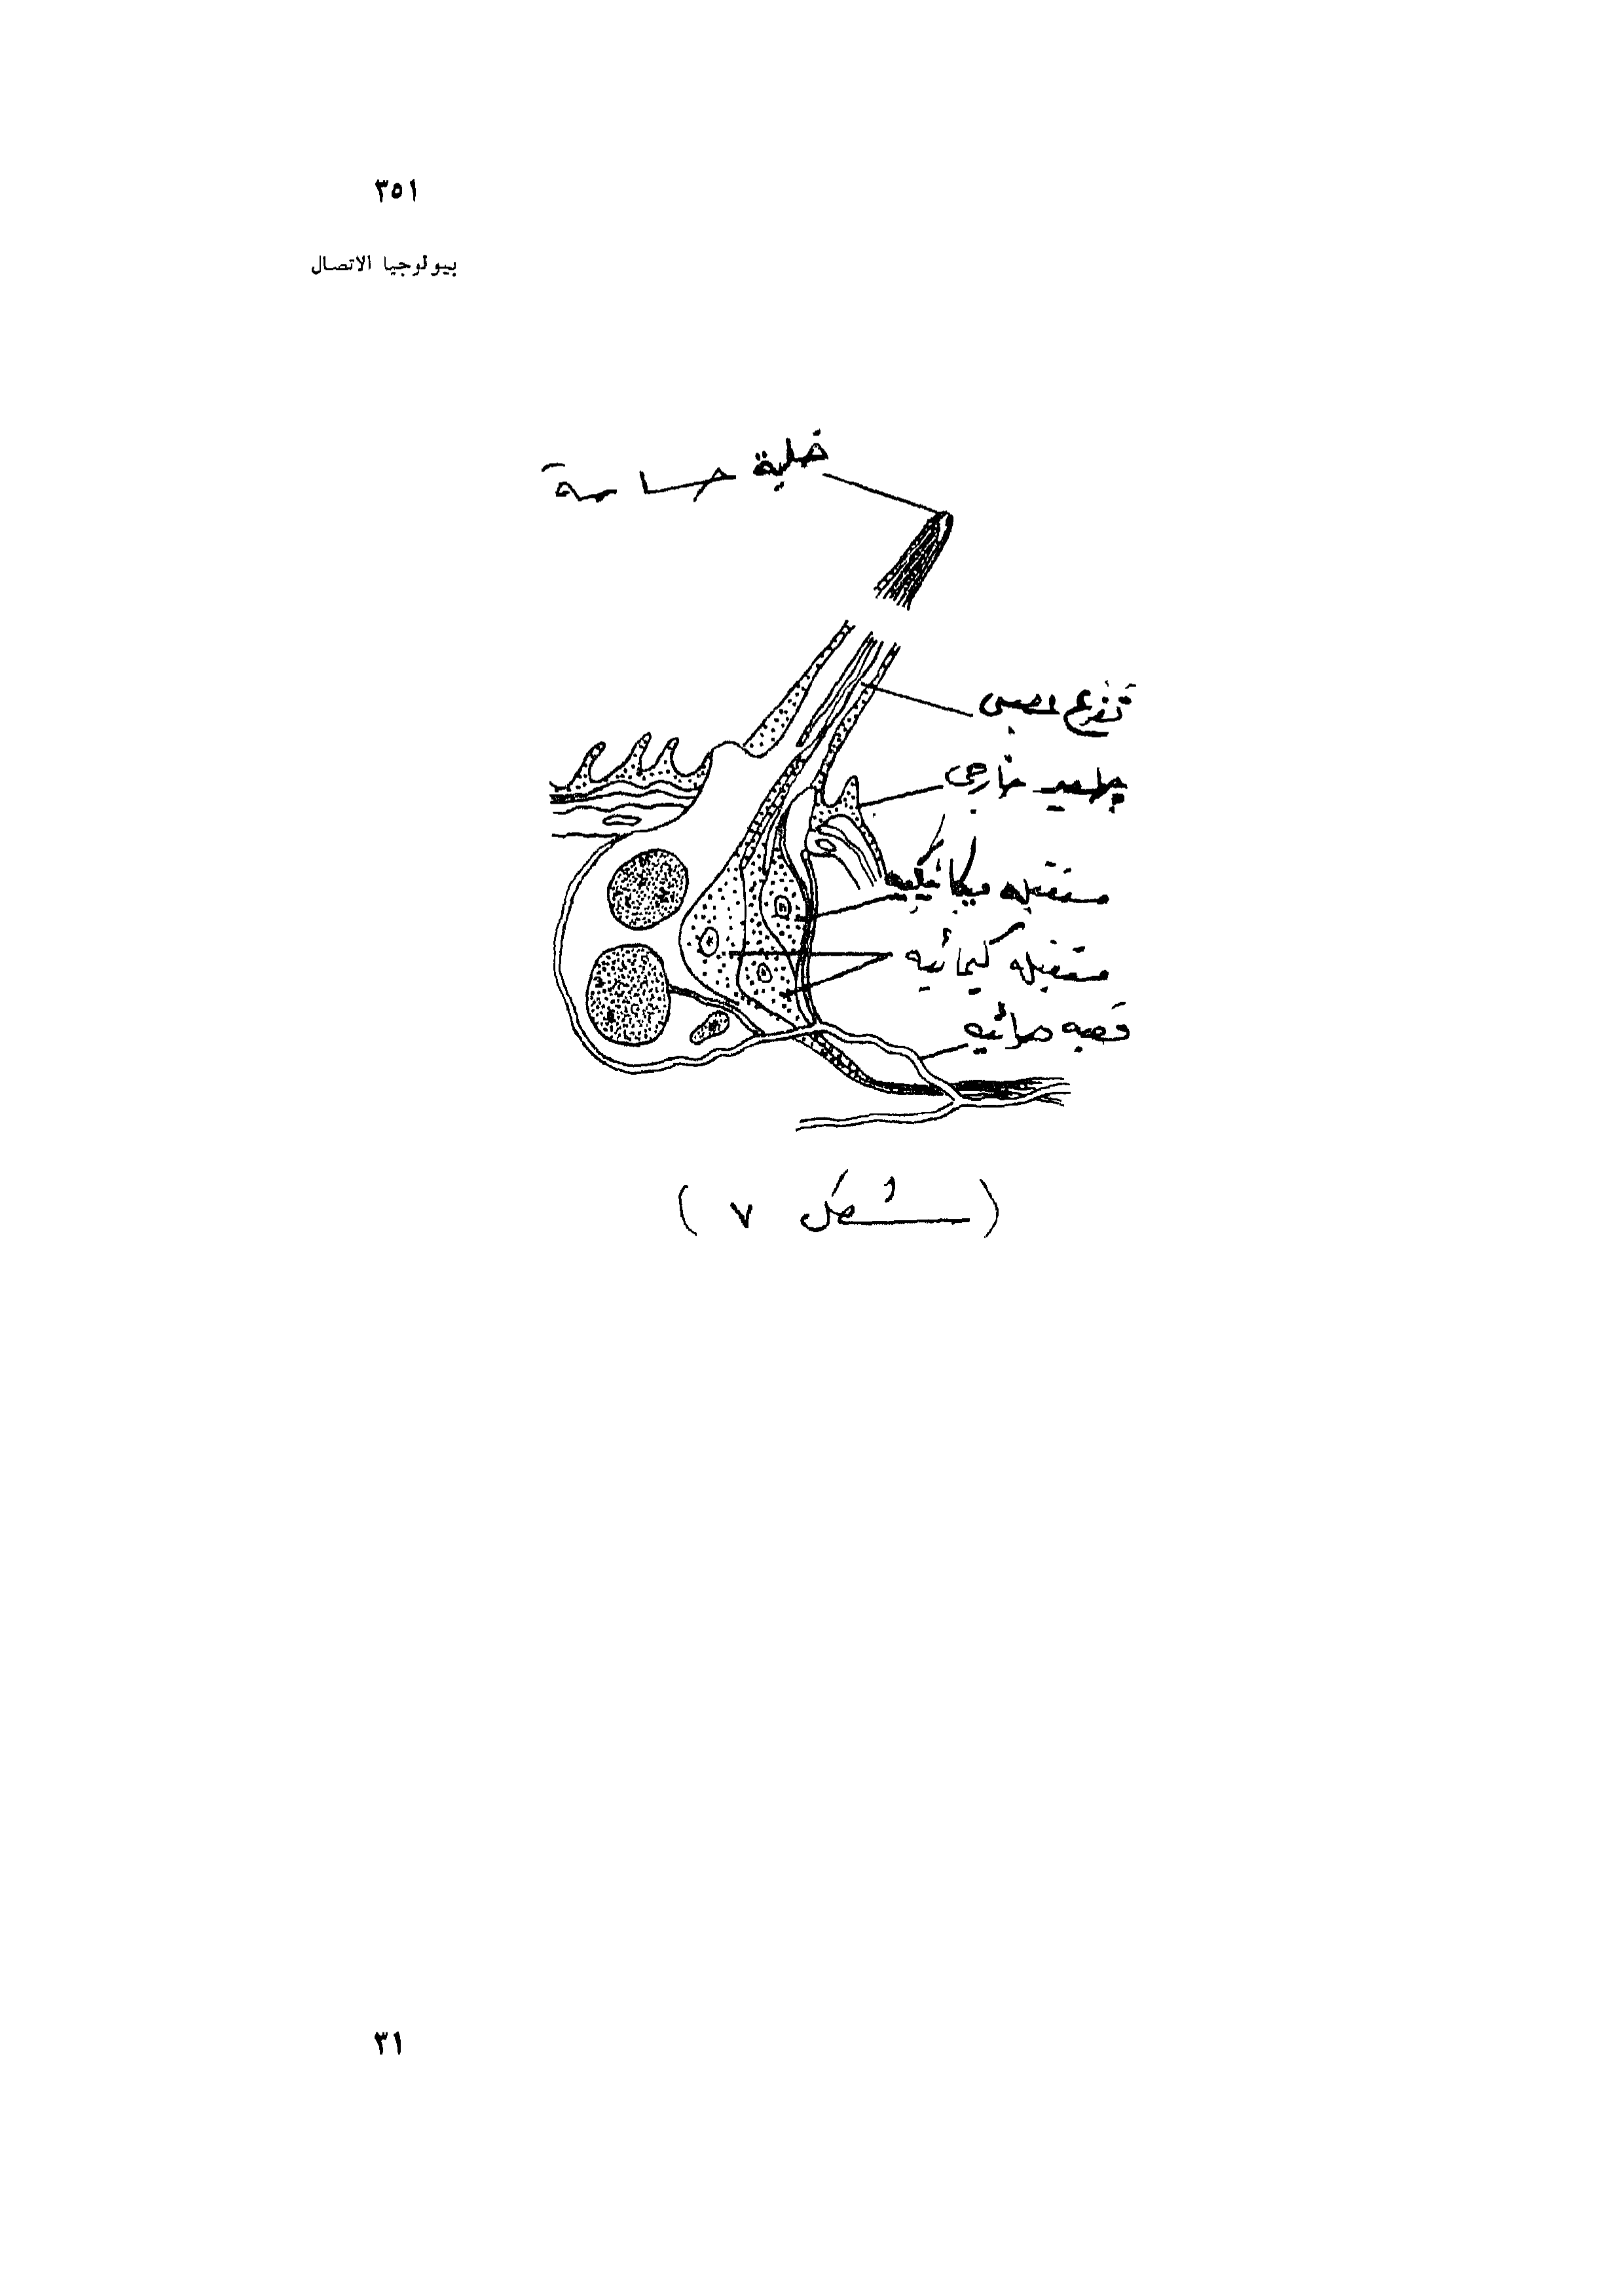 ٣٥١
بيولوجيا الاتصال
خلية حساسة
تفرع عصبى
خارجى
مستقبله ميكانيكيه
مستقبله كيمائيه
قصبه هوائيه
( شكل ٧ )
٣١